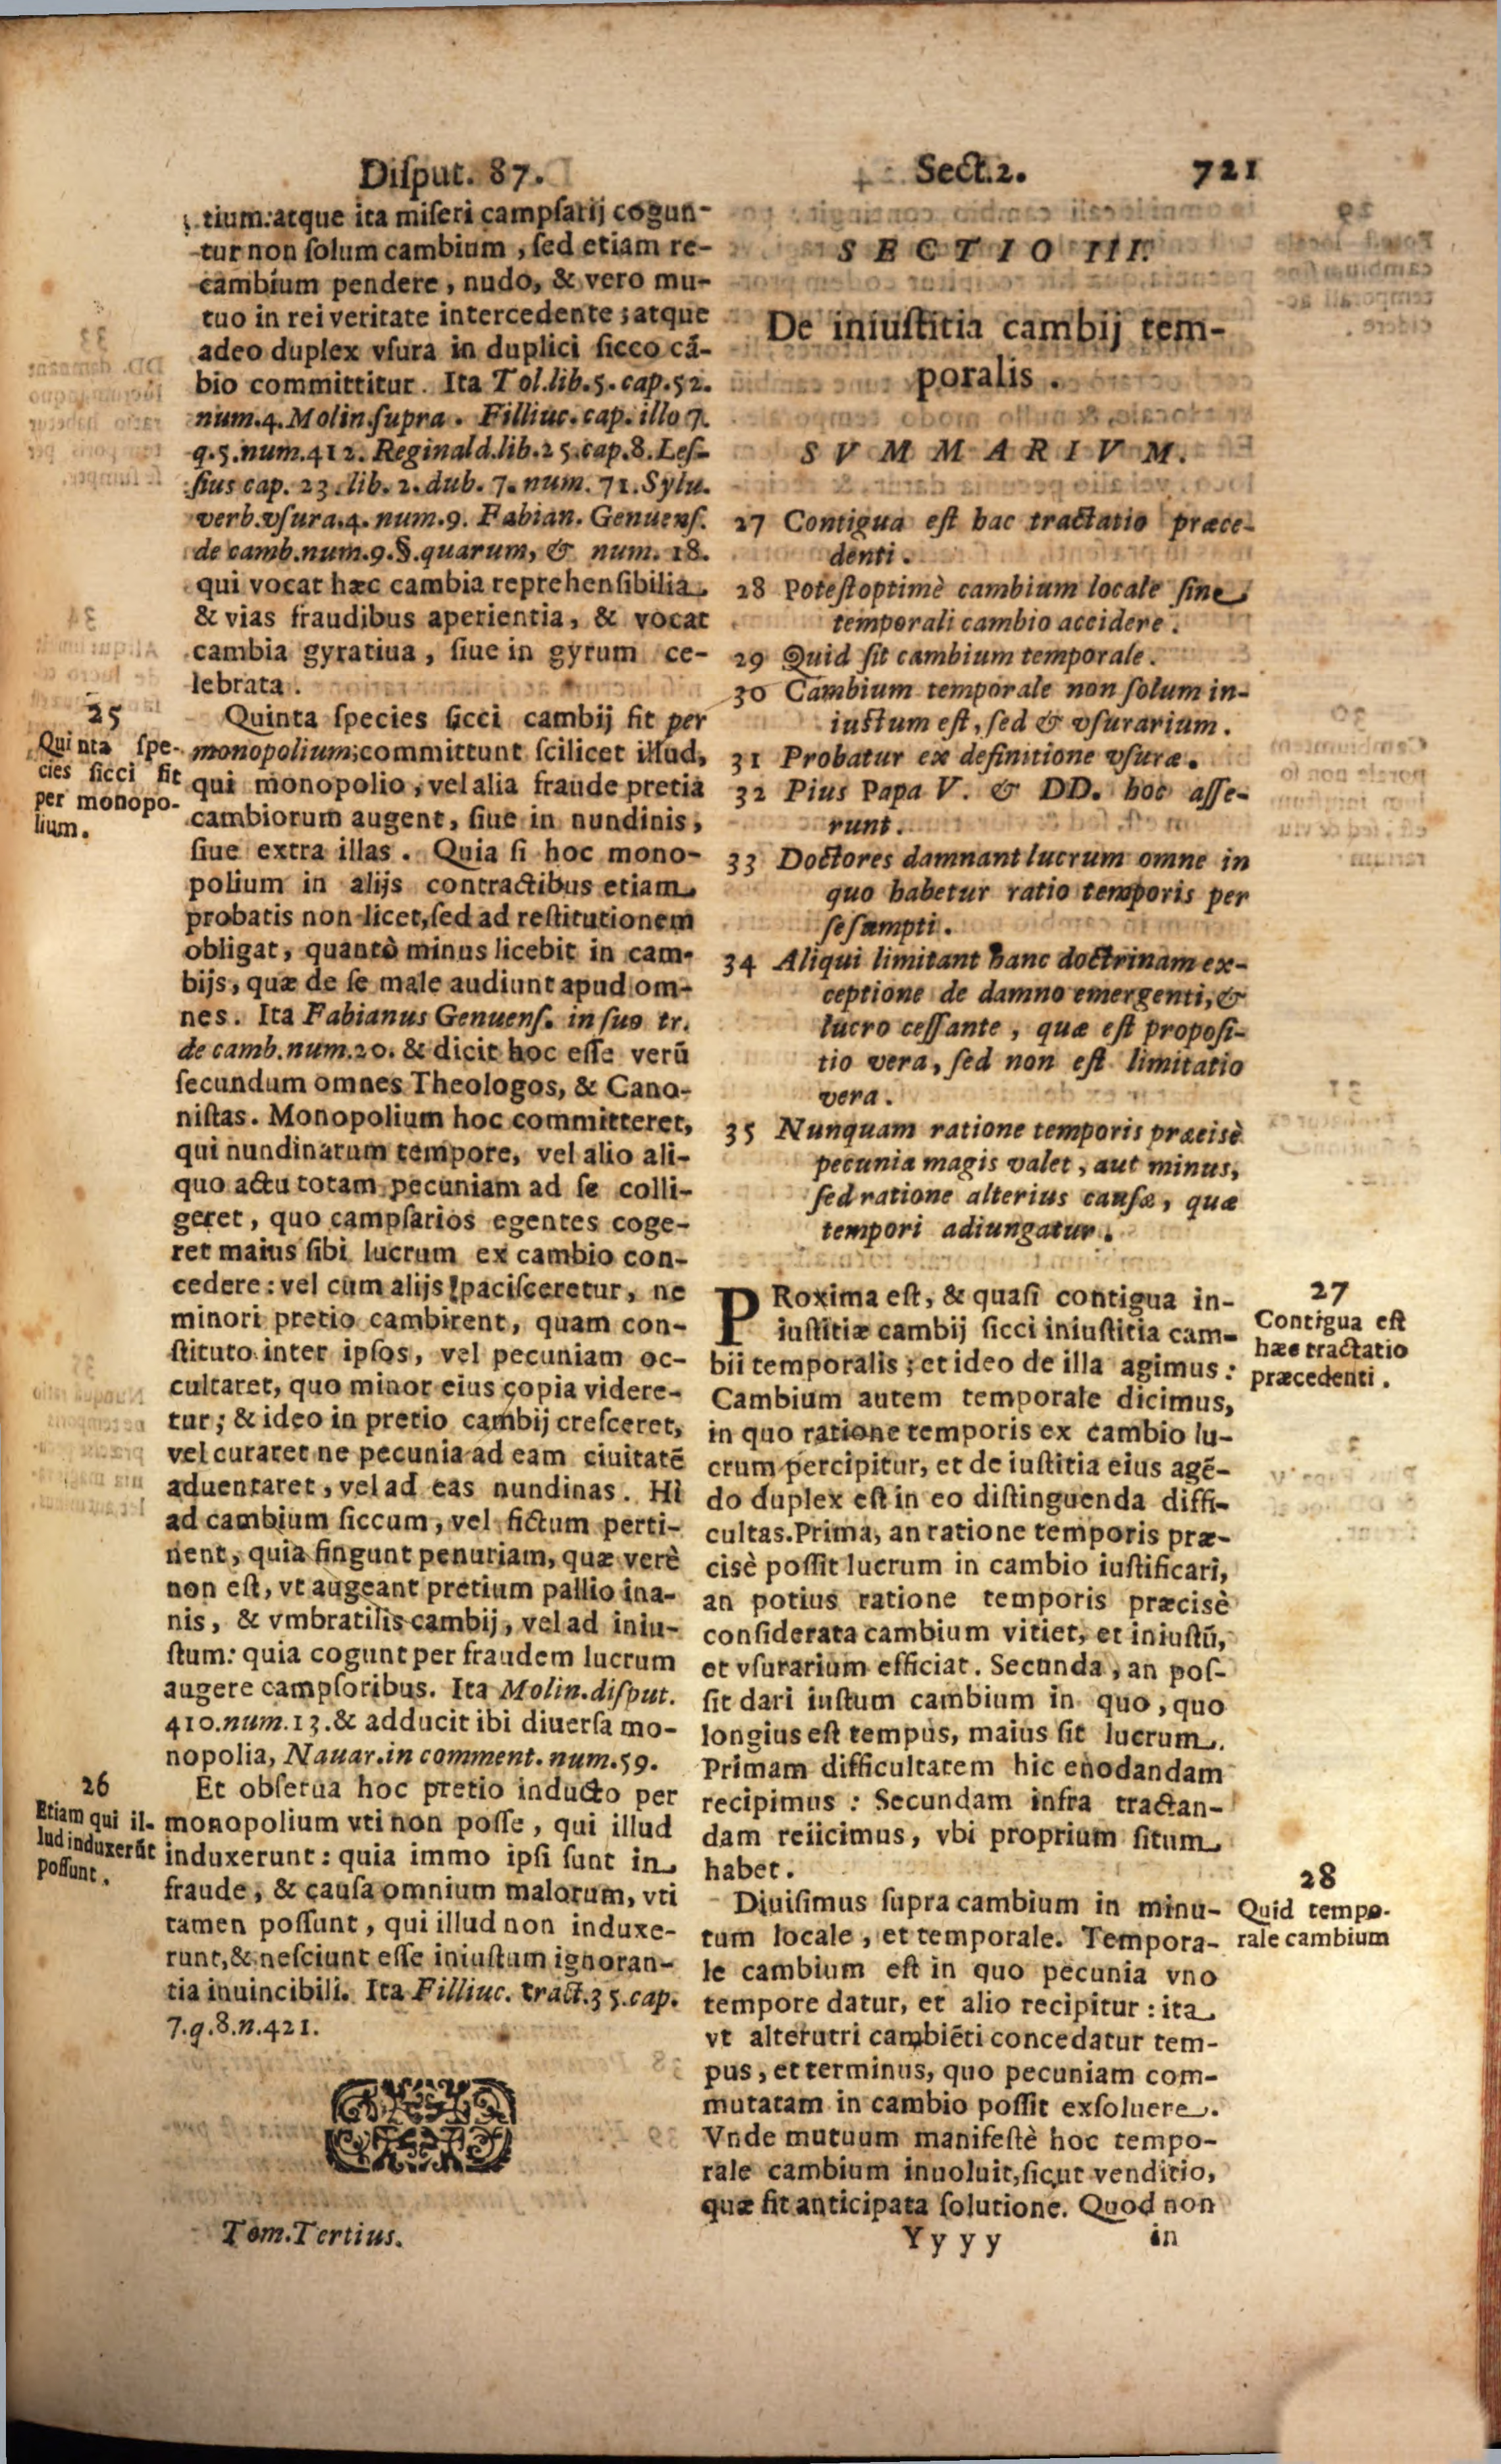 Diſput. 87.
Sect.2.
721
tium: atque ita miſeri campſarij cogun-
tur non ſolum cambium, ſed etiam re-
cambium pendere, nudo, & vero mu-
tuo in rei veritate intercedente; atque
adeo duplex vſura in duplici ſicco cã-
bio committitur. Ita Tol.lib.5.cap.52.
num.4. Molin.ſupra. Filliuc.cap.illo 7.
q.5.num.412. Reginald.lib.25.cap.8. Leſ-
ſius cap. 23.lib. 2. dub. 7. num. 71. Sylu.
verb.vſura.4. num.9. Fabian. Genuenſ.
de camb.num.9.§.quarum, & num. 18.
qui vocat hæc cambia reprehenſibilia,
& vias fraudibus aperientia, & vocat
cambia gyratiua, ſiue in gyrum ce-
lebrata.
25
Quinta ſpe-
cies ſicci fit
per monopo-
lium.
Quinta ſpecies ſicci cambij fit per
monopolium; committunt ſcilicet illud,
qui monopolio, vel alia fraude pretia
cambiorum augent, ſiue in nundinis,
ſiue extra illas. Quia ſi hoc mono-
polium in alijs contractibus etiam
probatis non licet, ſed ad reſtitutionem
obligat, quantò minus licebit in cam-
bijs, quæ de ſe male audiunt apud om-
nes. Ita Fabianus Genuenſ. in ſuo tr.
de camb.num.20. & dicit hoc eſſe verũ
ſecundum omnes Theologos, & Cano-
niſtas. Monopolium hoc committeret,
qui nundinarum tempore, vel alio ali-
quo actu totam pecuniam ad ſe colli-
geret, quo campſarios egentes coge-
ret maius ſibi lucrum ex cambio con-
cedere: vel cum alijs paciſceretur, ne
minori pretio cambirent, quam con-
ſtituto inter ipſos, vel pecuniam oc-
cultaret, quo minor eius copia videre-
tur; & ideo in pretio cambij creſceret,
vel curaret ne pecunia ad eam ciuitatẽ
aduentaret, vel ad eas nundinas. Hì
ad cambium ſiccum, vel fictum perti-
nent, quia fingunt penuriam, quæ verè
non eſt, vt augeant pretium pallio ina-
nis, & vmbratilis cambij, vel ad iniu-
ſtum: quia cogunt per fraudem lucrum
augere campſoribus. Ita Molin.diſput.
410.num.13.& adducit ibi diuerſa mo-
nopolia, Nauar.in comment.num.59.
26
Etiam qui il-
lud induxerũt
poſſunt.
Et obſerua hoc pretio inducto per
monopolium vti non poſſe, qui illud
induxerunt: quia immo ipſi ſunt in
fraude, & cauſa omnium malorum, vti
tamen poſſunt, qui illud non induxe-
runt, & neſciunt eſſe iniuſtum ignoran-
tia inuincibili. Ita Filliuc. tract.35.cap.
7.q.8.n.421.
Tom.Tertius.
SECTIO III.
De iniuſtitia cambij tem-
poralis.
SVMMARIVM.
27 Contigua eſt hac tractatio præce-
denti.
28 Poteſt optimè cambium locale ſine
temporali cambio accidere.
29 Quid ſit cambium temporale.
30 Cambium temporale non ſolum in-
iuſtum eſt, ſed & vſurarium.
31 Probatur ex definitione vſuræ.
32 Pius Papa V. & DD. hoc aſſe-
runt.
33 Doctores damnant lucrum omne in
quo habetur ratio temporis per
ſe ſumpti.
34 Aliqui limitant hanc doctrinam ex-
ceptione de damno emergenti, &
lucro ceſſante, quæ eſt propoſi-
tio vera, ſed non eſt limitatio
vera.
35 Nunquam ratione temporis præcisè
pecunia magis valet, aut minus,
ſed ratione alterius cauſæ, quæ
tempori adiungatur.
27
Contigua eſt
hæc tractatio
præcedenti.
PRoxima eſt, & quaſi contigua in-
iuſtitiæ cambij ſicci iniuſtitia cam-
bii temporalis; et ideo de illa agimus:
Cambium autem temporale dicimus,
in quo ratione temporis ex cambio lu-
crum percipitur, et de iuſtitia eius agẽ-
do duplex eſt in eo diſtinguenda diffi-
cultas. Prima, an ratione temporis præ-
cisè poſſit lucrum in cambio iuſtificari,
an potius ratione temporis præcisè
conſiderata cambium vitiet, et iniuſtũ,
et vſurarium efficiat. Secunda, an poſ-
ſit dari iuſtum cambium in quo, quo
longius eſt tempus, maius ſit lucrum.
Primam difficultatem hic enodandam
recipimus: Secundam infra tractan-
dam reiicimus, vbi proprium ſitum
habet.
28
Quid tempo-
rale cambium
Diuiſimus ſupra cambium in minu-
tum locale, et temporale. Tempora-
le cambium eſt in quo pecunia vno
tempore datur, et alio recipitur: ita
vt alterutri cambiẽti concedatur tem-
pus, et terminus, quo pecuniam com-
mutatam in cambio poſſit exſoluere.
Vnde mutuum manifeſtè hoc tempo-
rale cambium inuoluit, ſicut venditio,
quæ fit anticipata ſolutione. Quod non
Yyyy
in